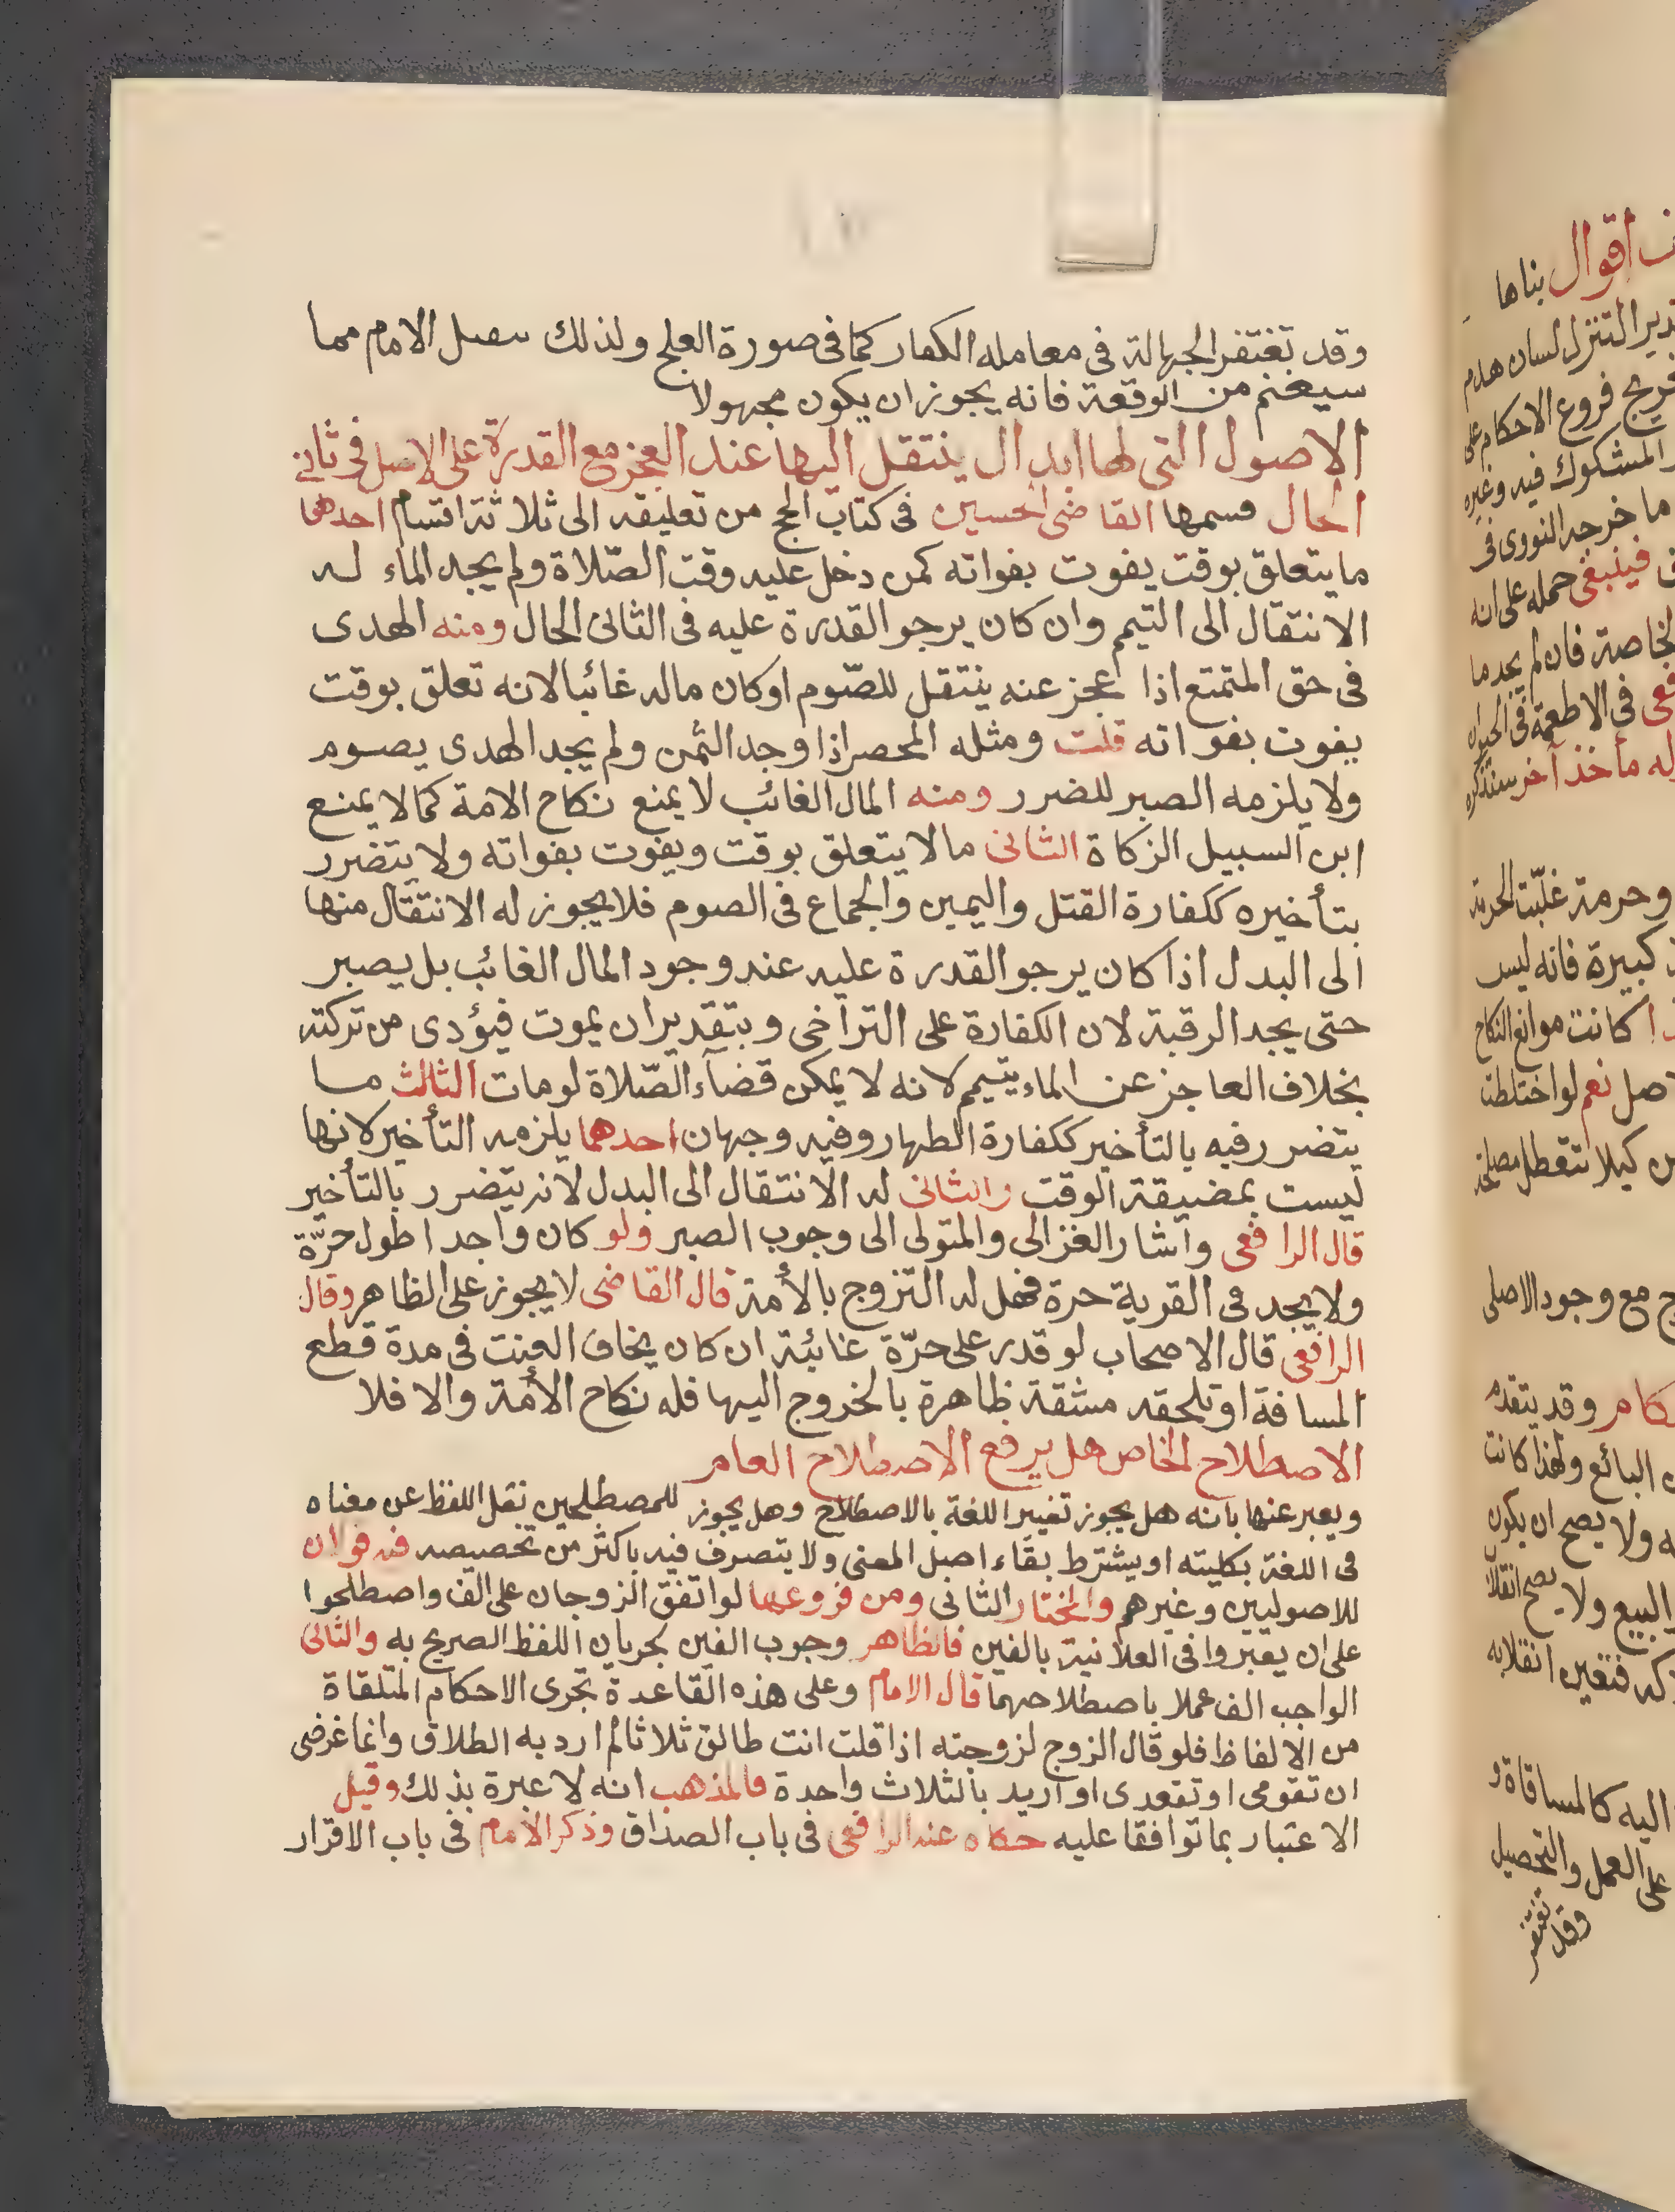 وقد تغتفر الجهالة فى معامله الكفار كما فى صورة العلج ولذلك الامام مما
سيغنم من الوقعة فانه يجوز ان يكون مجهولا
الاصول التى لها ابدال ينتقل اليها عند العجز مع القدرة على الاصل فى ثانى
الحال قسمها القاضى الحسين فى كتاب الحج من تعليقه الى ثلاثة اقسام احدهما
ما يتعلق بوقت يفوت بفواته كمن دخل عليه وقت الصّلاة ولم يجد الماء له
الانتقال الى التيمم وان كان يرجو القدرة عليه فى الثانى الحال ومنه الهدى
فى حق المتمتع اذا عجز عنه ينتقل للصّوم او كان ماله غائبا لانه تعلق بوقت
يفوت بفواته قلت ومثله المحصر اذا وجد الثمن ولم يجد الهدى يصوم
ولا يلزمه الصبر للضرر ومنه المال الغائب لا يمنع نكاح الامة كما لا يمنع
ابن السبيل الزكاة الثانى ما لا يتعلق بوقت ويفوت بفواته ولا يتضرر
بتأخيره ككفارة القتل واليمين والجماع فى الصوم فلا يجوز له الانتقال منها
الى البدل اذا كان يرجو القدرة عليه عند وجود المال الغائب بل يصبر
حتى يجد الرقبة لان الكفارة على التراخى وبتقدير ان يموت فيؤدى من تركته
بخلاف العاجز عن الماء يتيمم لانه لا يمكن قضآء الصّلاة لو مات الثالث ما
يتضرر فيه بالتأخير ككفارة الظهار وفيه وجهان احدهما يلزمه التأخير لانها
ليست بمضيقة الوقت والثانى له الانتقال الى البدل لانه يتضرر بالتأخير
قال الرافعى واشار الغزالى والمتولى الى وجوب الصبر ولو كان واجد اطول حرّة
ولا يجد فى القرية حرة فهل له التزوج بالأمة قال القاضى لا يجوز على الظاهر وقال
الرافعى قال الاصحاب لو قدر على حرّة غائبة ان كان يخاف العنت فى مدة قطع
المسافة او تلحقه مشقة ظاهرة بالخروج اليها فله نكاح الأمة والا فلا
الاصطلاح الخاص هل يرفع الاصطلاح العام
ويعبر عنها بانه هل يجوز تغيير اللغة بالاصطلاح وهل يجوز للمصطلحين نقل اللفظ عن معناه
فى اللغة بكليته او يشترط بقاء اصل المعنى ولا يتصرف فيه باكثر من تخصيصه فيه قولان
للاصوليين وغيرهم والمختار الثانى ومن فروعها لو اتفق الزوجان على الف واصطلحوا
على ان يعبروا فى العلانية بالفين فالظاهر وجوب الفين لجريان اللفظ الصريح به والثانى
الواجب الف عملا باصطلاحهما قال الامام وعلى هذه القاعدة تجرى الاحكام المتلقاة
من الالفاظ فلو قال الزوج لزوجته اذا قلت انت طالق ثلاثا لم ارد به الطلاق وانما غرضى
ان تقومى او تقعدى او اريد بالثلاث واحدة فالمذهب انه لا عبرة بذلك وقيل
الاعتبار بما توافقا عليه حكاه عند الرافعى فى باب الصداق وذكر الامام فى باب الاقرار